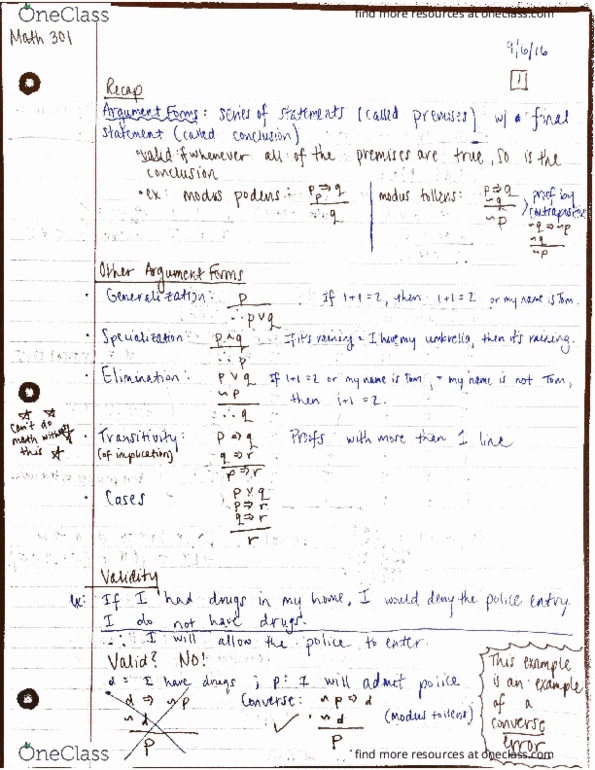 OneClass
find more resources at oneclass.com
Math 301
9/6/16
1
Recap
Argument Forms: series of statements (called premises) w/ a final
statement (called conclusion)
valid if whenever all of the premises are true, so is the
conclusion
• ex: modus podens: p ⇒ q
p
∴ q
modus tollens: p ⇒ q
~q
~p
proof by
contrapositive
~q ⇒ ~p
~q
~p
Other Argument Forms
• Generalization: p
∴ p ∨ q
If 1+1=2, then 1+1=2 or my name is Tom.
• Specialization: p ∧ q
∴ p
If it's raining + I have my umbrella, then it's raining.
• Elimination: p ∨ q
~p
∴ q
If 1+1=2 or my name is Tom, + my name is not Tom,
then 1+1=2.
☆ ☆
can't do
math without
this ☆
• Transitivity:
(of implication)
p ⇒ q
q ⇒ r
p ⇒ r
Proofs with more than 1 line
• Cases
p ∨ q
p ⇒ r
q ⇒ r
r
Validity
ex: If I had drugs in my home, I would deny the police entry.
I do not have drugs.
∴ I will allow the police to enter.
Valid? No!
d = I have drugs ; p: I will admit police
d ⇒ ~p
~d
p
Converse: ~p ⇒ d
✓ • ~d
p
(modus tollens)
This example
is an example
of a
converse
error
OneClass
find more resources at oneclass.com